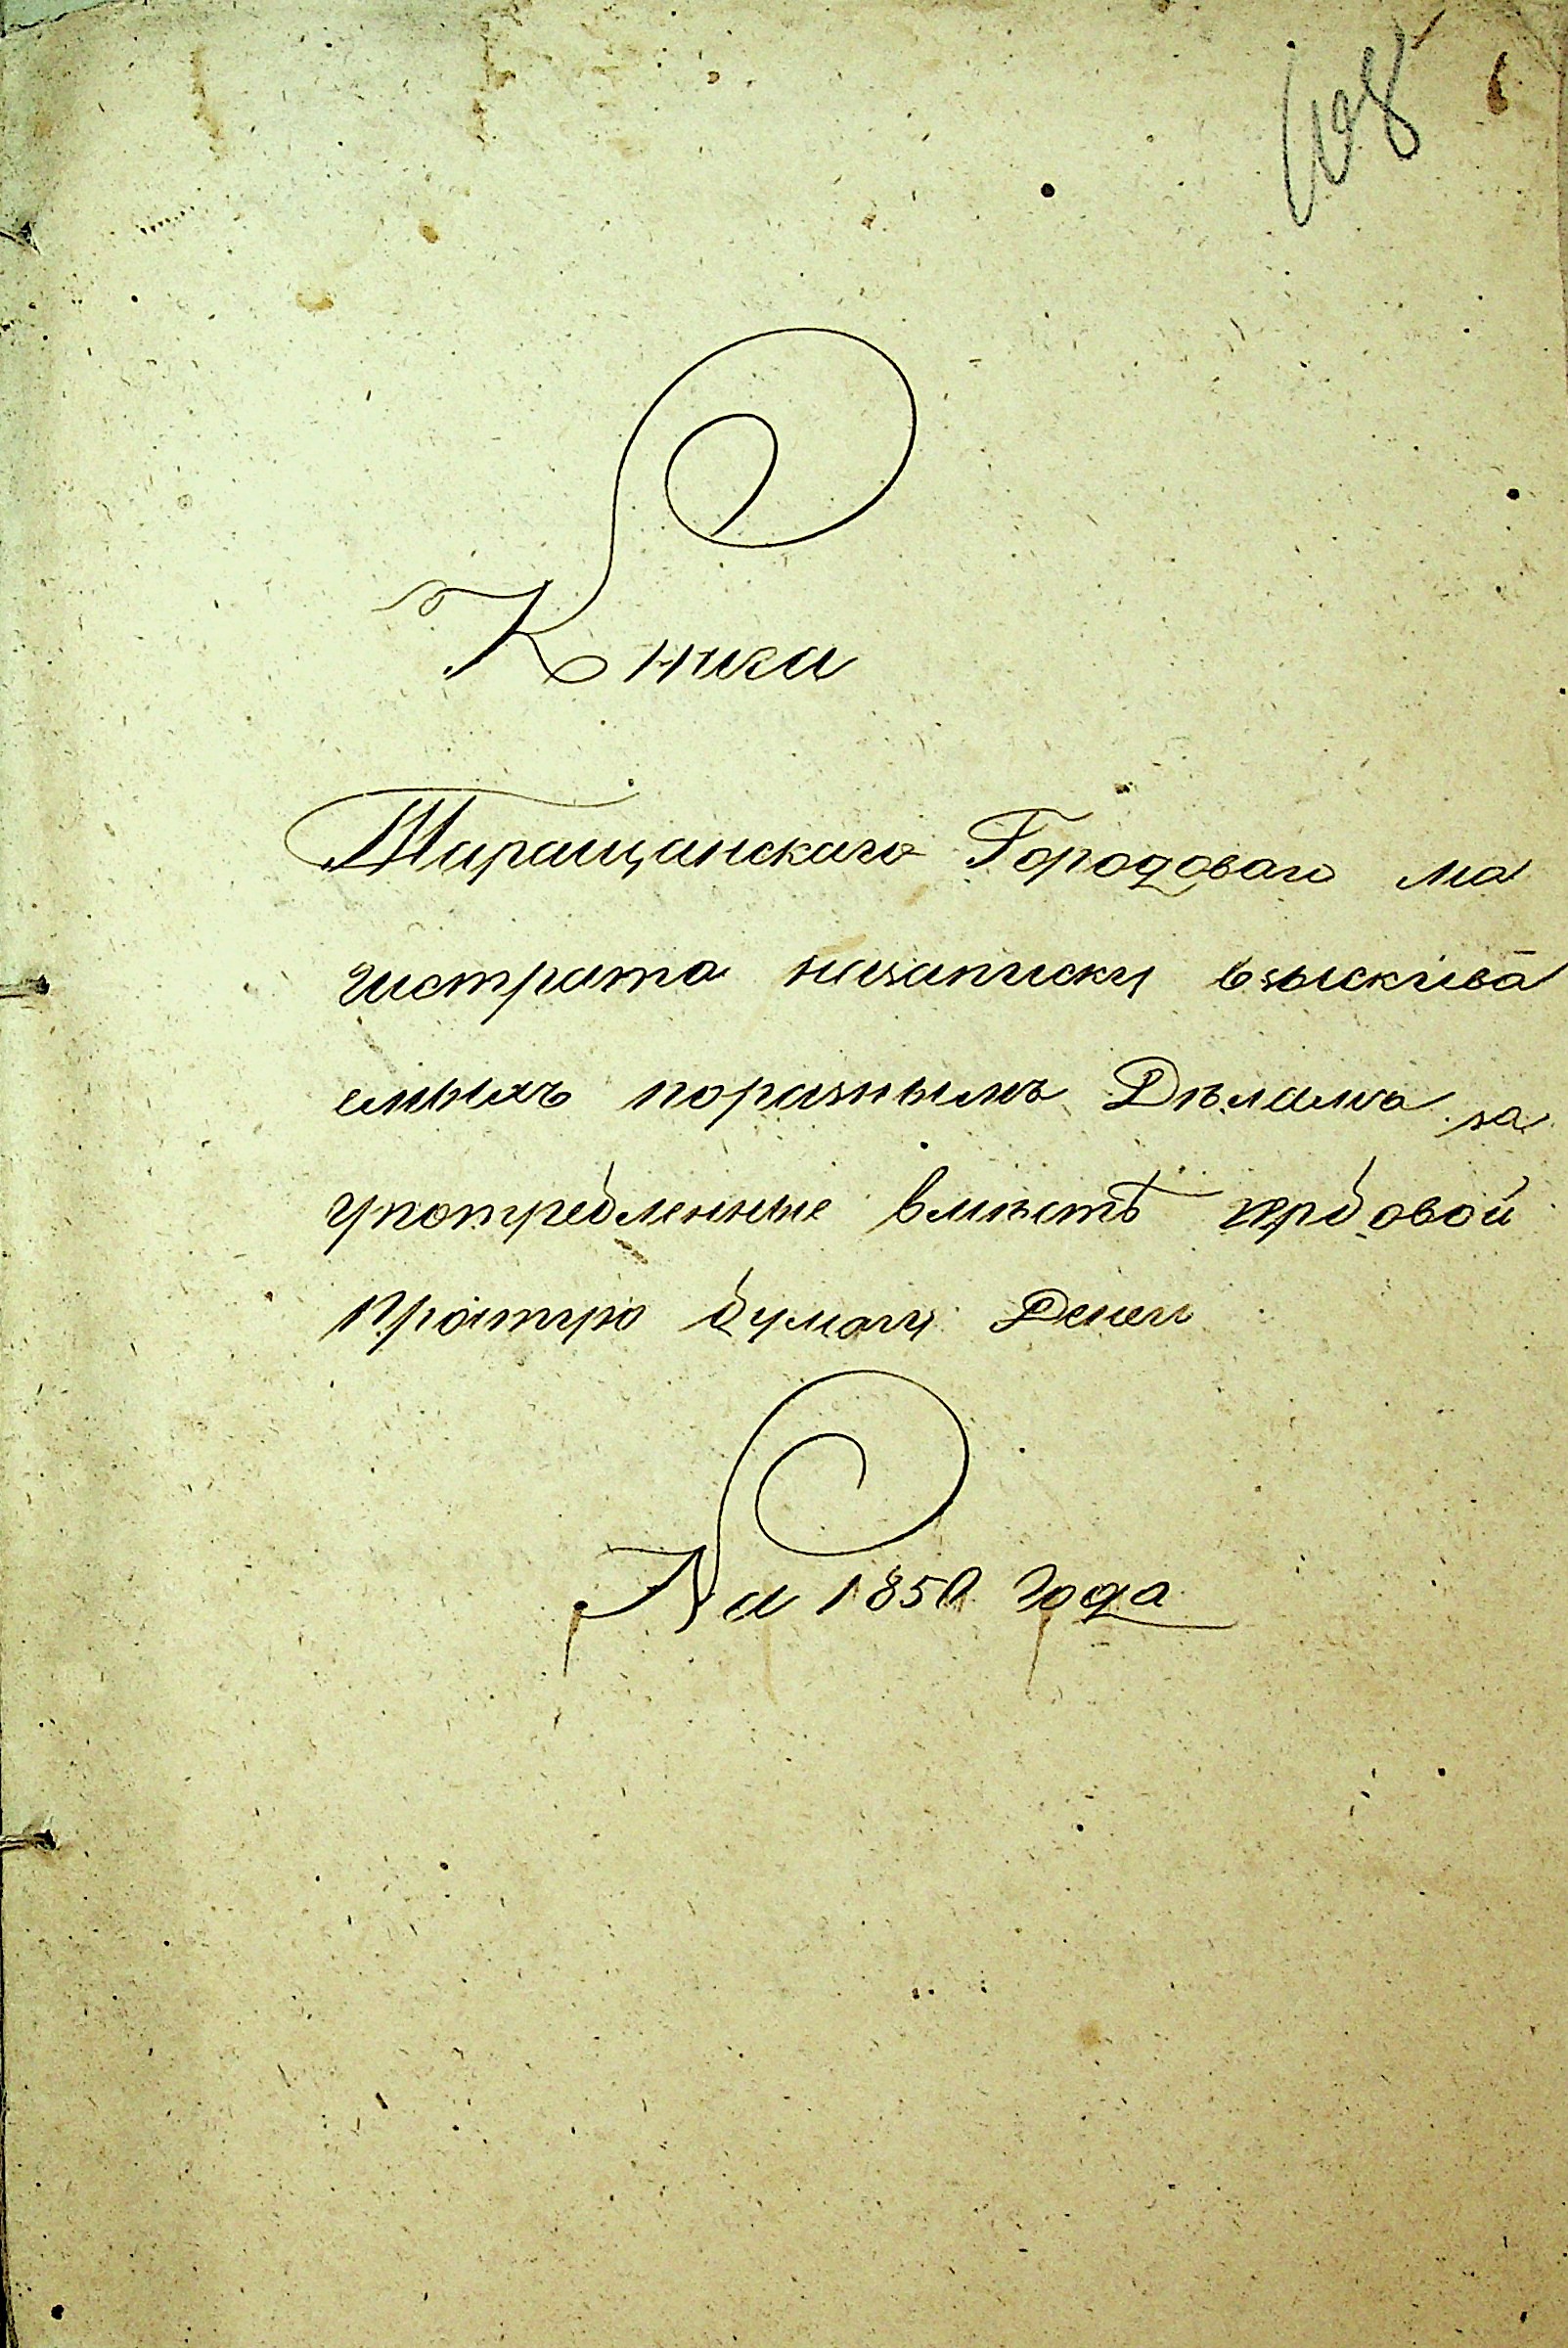 Книга
Таращанскаго Городоваго ма
гистрата назаписку взыскива
емыхъ поразнымъ Дѣламъ за
употребленные вмѣстѣ гербовой
простую бумагу Денегъ
На 1850 Года